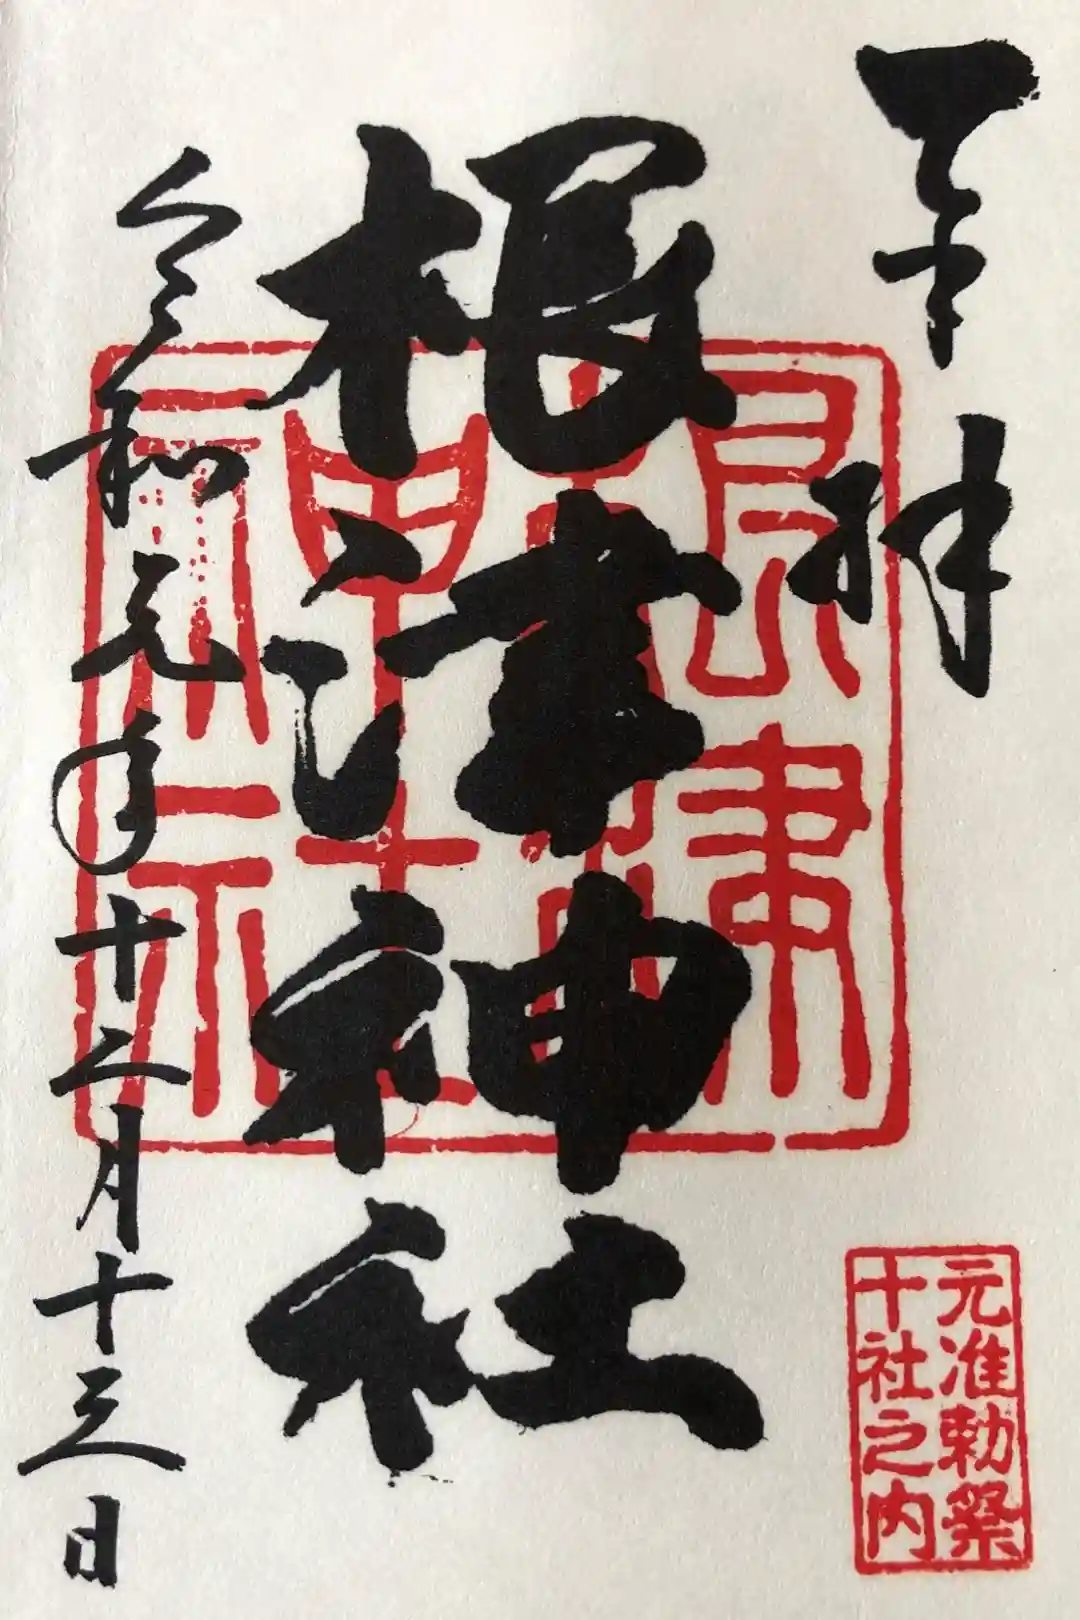 奉拝
根津神社
令和元年十二月十三日
根津
神社
元准勅祭
十社之内